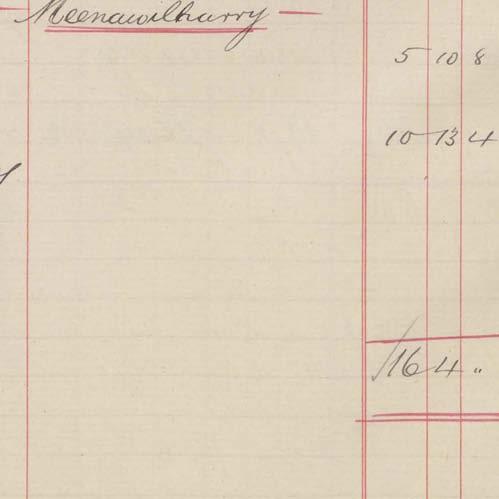 Meenawilharry
5 10 8
10 13 4
16 4 "